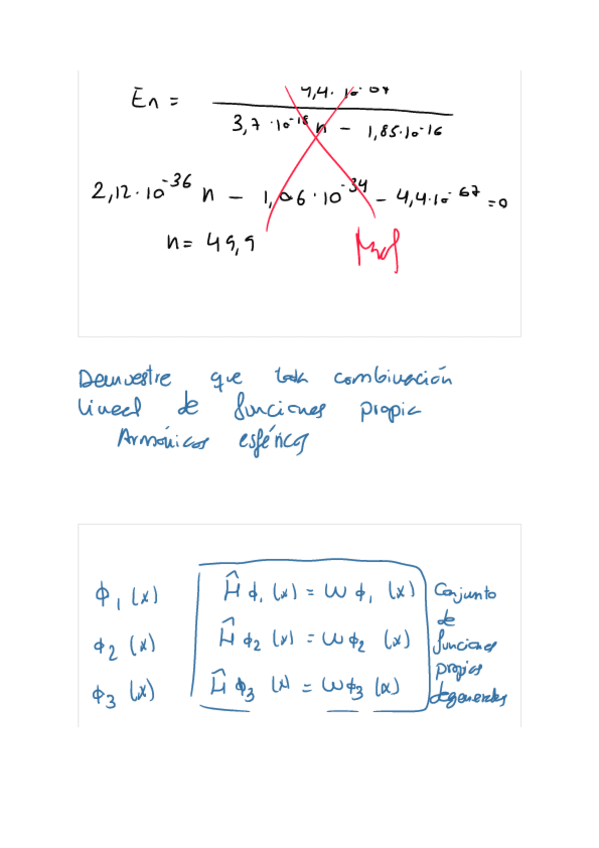 En = 4,4 · 10⁻⁶⁷ / 3,7 · 10⁻¹⁸ n − 1,85 · 10⁻¹⁶
2,12 · 10⁻³⁶ n − 1,06 · 10⁻³⁴ − 4,4 · 10⁻⁶⁷ = 0
n = 49,9
Demuestre que toda combinación
lineal de funciones propia
Armónicos esféricos
ϕ₁ (x) Ĥ ϕ₁ (x) = ω ϕ₁ (x) Conjunto
de
ϕ₂ (x) Ĥ ϕ₂ (x) = ω ϕ₂ (x) funciones
propias
ϕ₃ (x) Ĥ ϕ₃ (x) = ω ϕ₃ (x) degeneradas